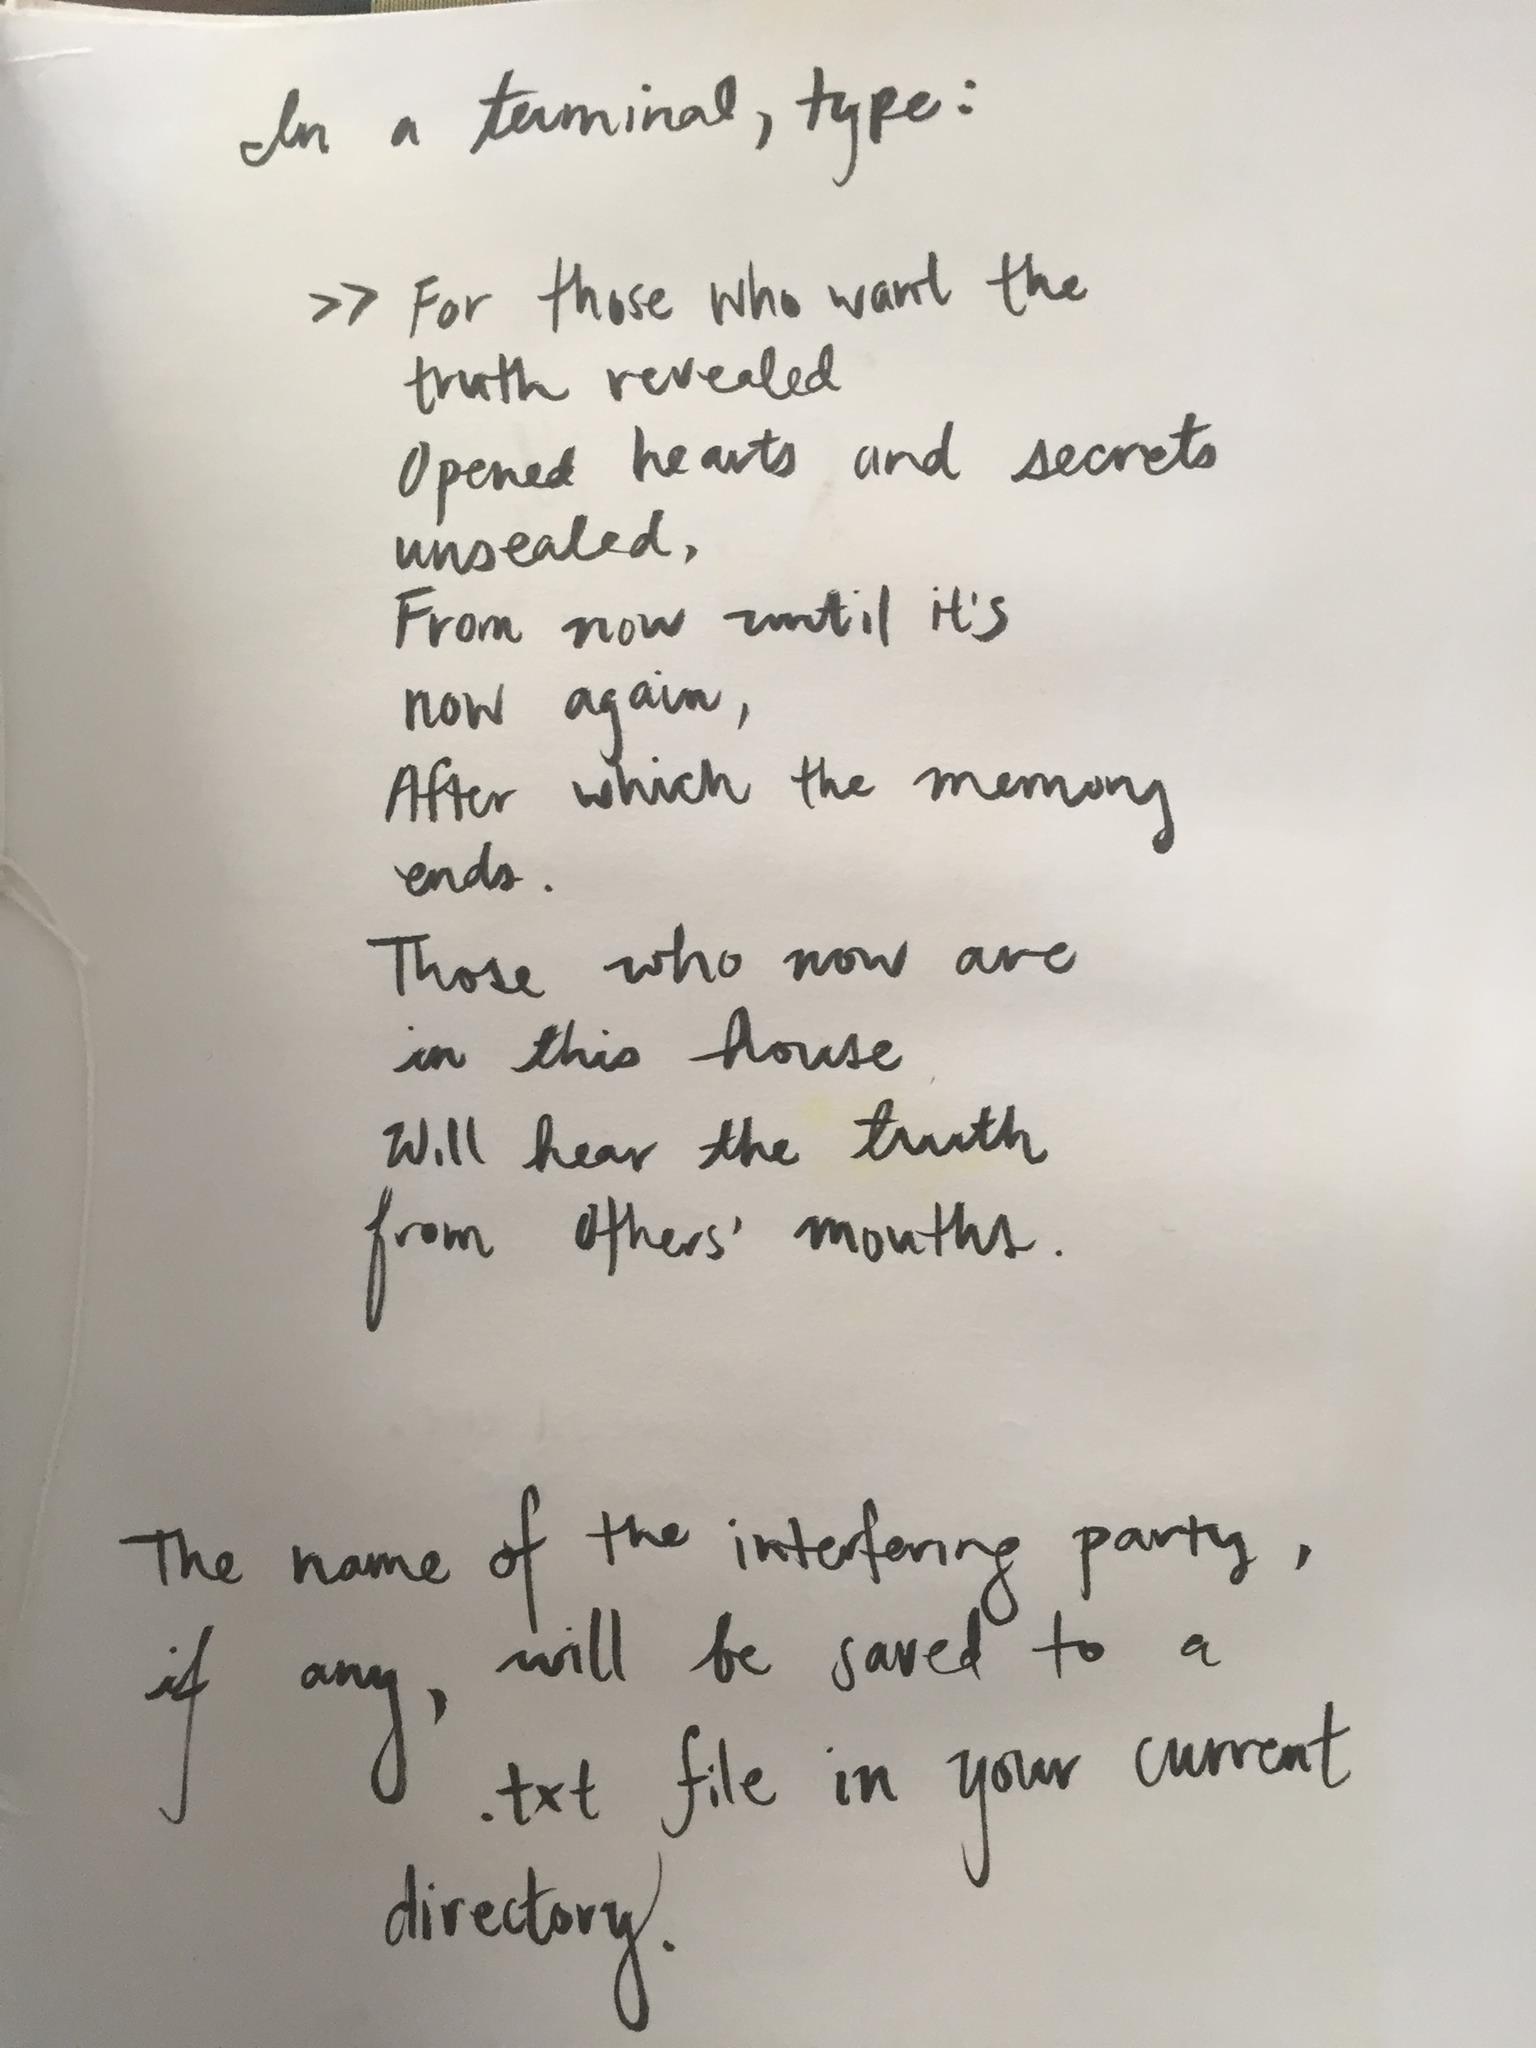 In a terminal, type:
>> For those who want the
truth revealed
Opened hearts and secrets
unsealed,
From now until it's
now again,
After which the memory
ends.
Those who now are
in this house
Will hear the truth
from others' mouths.
The name of the interfering party,
if any, will be saved to a
.txt file in your current
directory.